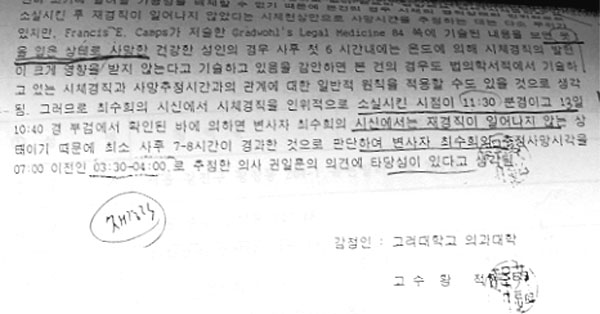 소실시킨 후 재경직이 일어나지 않았다는 시체현상만으로 사망시간을 추정하는
있지만, Francis E. Camps가 저술한 Gradwohl's Legal Medicine 84 쪽에 기술된 내용을 보면 옷
을 입은 상태로 사망한 건강한 성인의 경우 사후 첫 6 시간내에는 온도에 의해 시체경직의 발현
이 크게 영향을 받지 않는다고 기술하고 있음을 감안하면 본 건의 경우도 법의학서적에서 기술하
고 있는 시체경직과 사망추정시간과의 관계에 대한 일반적 원칙을 적용할 수도 있을 것으로 생각
됨. 그러므로 최수희의 시신에서 시체경직을 인위적으로 소실시킨 시점이 11:30 분경이고 13일
10:40 경 부검에서 확인된 바에 의하면 변사자 최수희의 시신에서는 재경직이 일어나지 않는 상
태이기 때문에 최소 사후 7-8시간이 경과한 것으로 판단하여 변사자 최수희의 추정사망시각을
07:00 이전인 03:30-04:00 로 추정한 의사 권일훈의 의견에 타당성이 있다고 생각됨.
재경직
감정인 : 고려대학교 의과대학
고 수 황 적